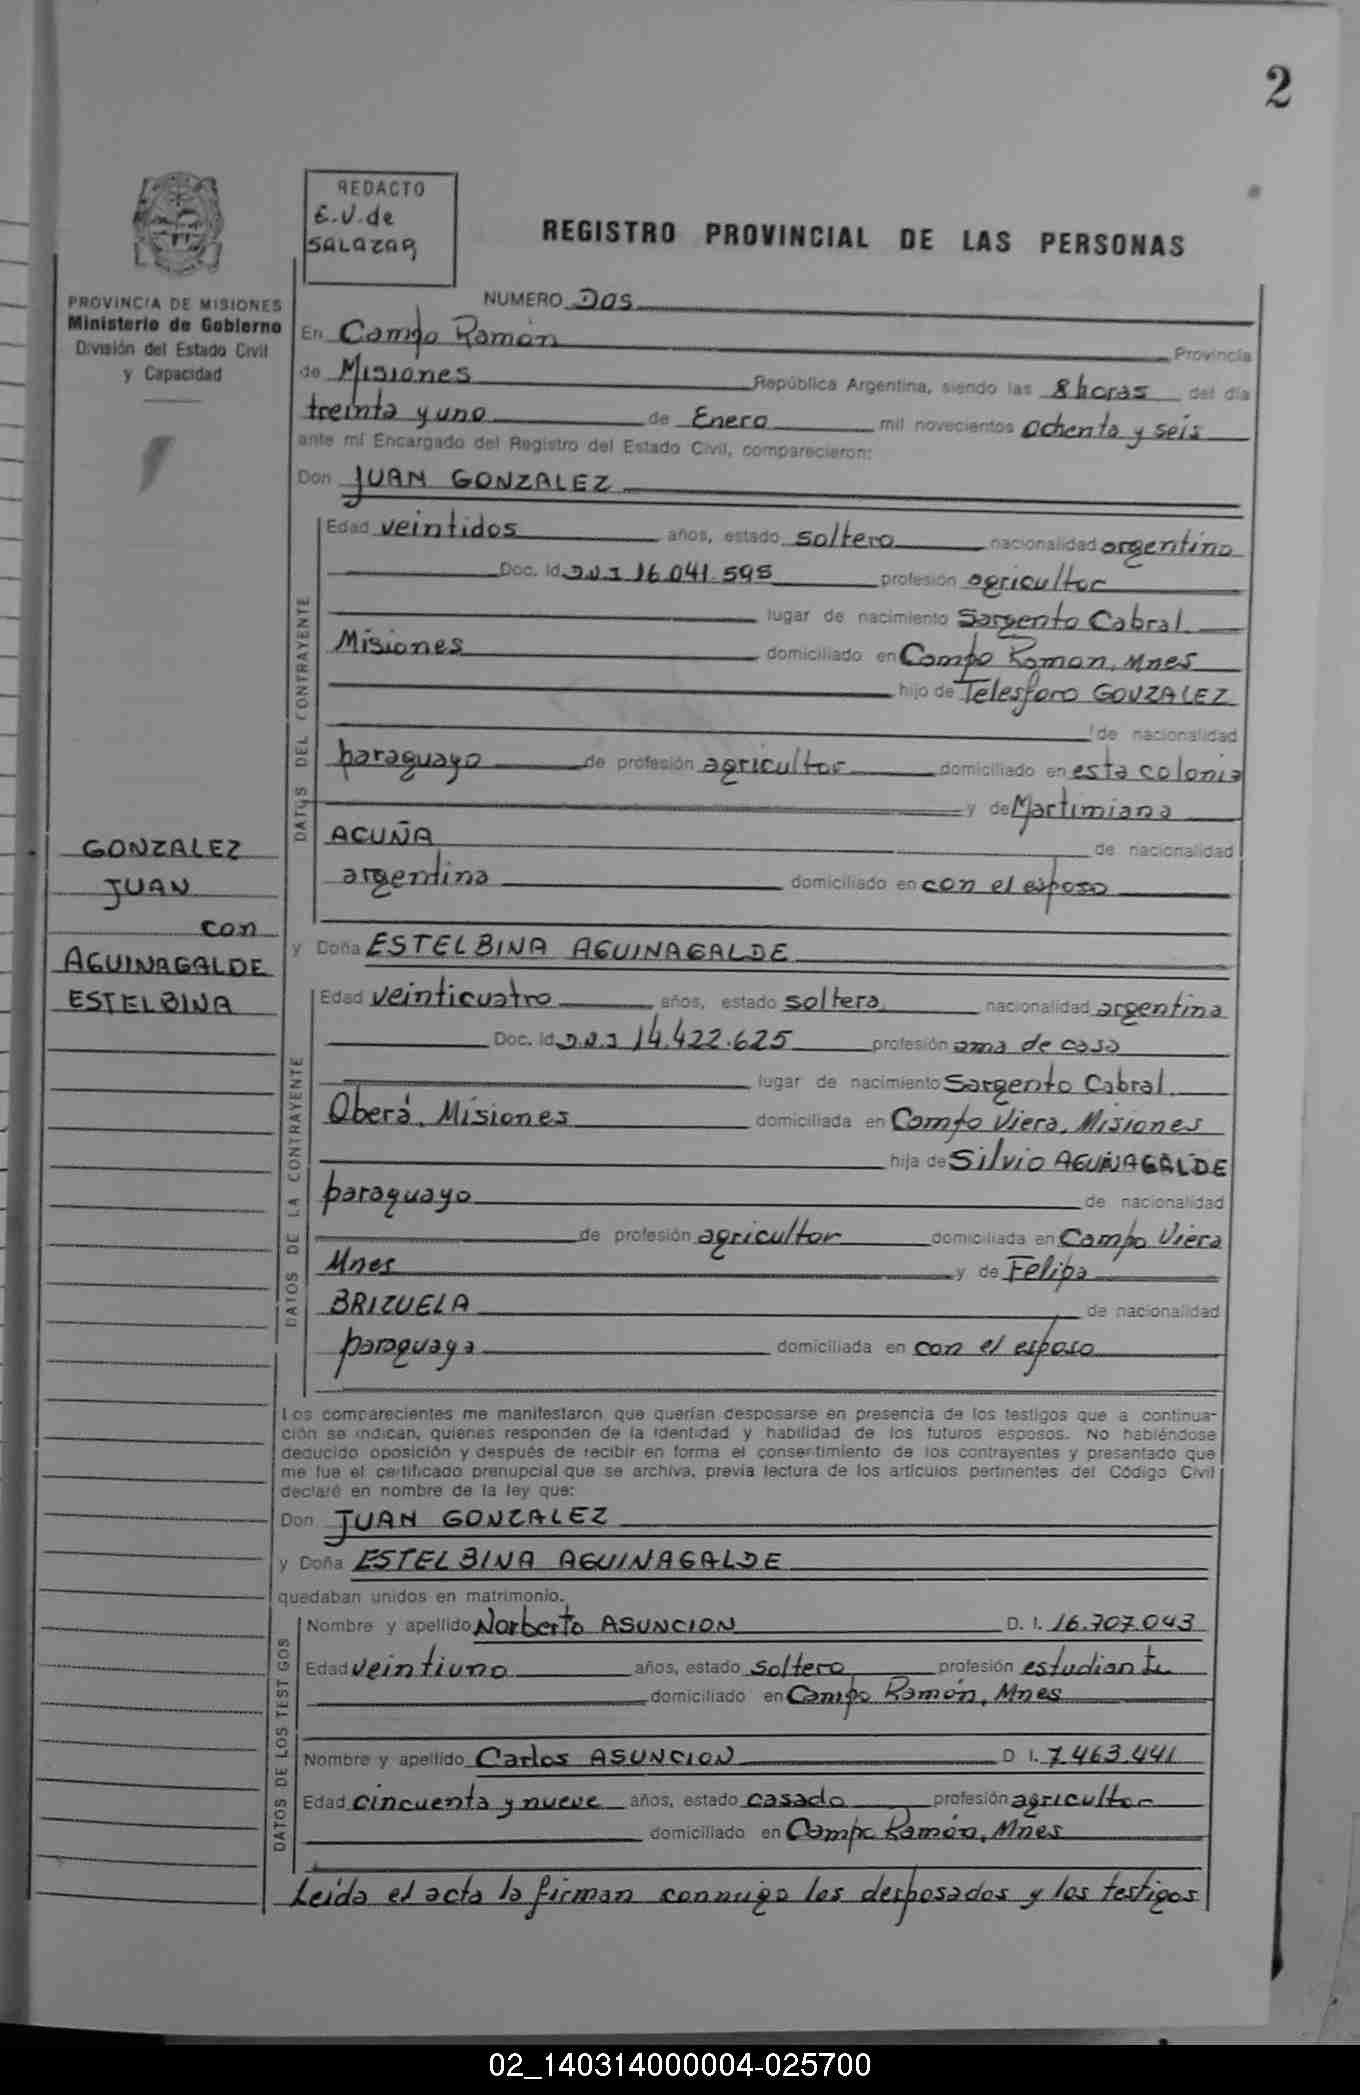 2
REDACTO
E.V. de
SALAZAR
REGISTRO PROVINCIAL DE LAS PERSONAS
PROVINCIA DE MISIONES
Ministerio de Gobierno
División del Estado Civil
y Capacidad
NUMERO DOS
En Campo Ramón Provincia
de Misiones República Argentina, siendo las 8 horas del día
treinta y uno de Enero mil novecientos ochenta y seis
ante mí Encargado del Registro del Estado Civil, comparecieron:
Don JUAN GONZALEZ
DATOS DEL CONTRAYENTE
Edad veintidos años, estado soltero nacionalidad argentino
Doc. Id D.N.I 16.041.595 profesión agricultor
lugar de nacimiento Sargento Cabral
Misiones domiciliado en Campo Ramon, Mnes
hijo de Telesforo GONZALEZ
de nacionalidad
paraguayo de profesión agricultor domiciliado en esta colonia
y de Martimiana
ACUÑA de nacionalidad
argentina domiciliado en con el esposo
GONZALEZ
JUAN
con
AGUINAGALDE
ESTELBINA
y Doña ESTELBINA AGUINAGALDE
DATOS DE LA CONTRAYENTE
Edad veinticuatro años, estado soltera nacionalidad argentina
Doc. Id D.N.I 14.422.625 profesión ama de casa
lugar de nacimiento Sargento Cabral
Oberá, Misiones domiciliada en Campo Viera, Misiones
hija de Silvio AGUINAGALDE
paraguayo de nacionalidad
de profesión agricultor domiciliada en Campo Viera
Mnes y de Felipa
BRIZUELA de nacionalidad
paraguaya domiciliada en con el esposo
Los comparecientes me manifestaron que querían desposarse en presencia de los testigos que a continua-
ción se indican, quienes responden de la identidad y habilidad de los futuros esposos. No habiéndose
deducido oposición y después de recibir en forma el consentimiento de los contrayentes y presentado que
me fue el certificado prenupcial que se archiva, previa lectura de los artículos pertinentes del Código Civil
declaré en nombre de la ley que:
Don JUAN GONZALEZ
y Doña ESTELBINA AGUINAGALDE
quedaban unidos en matrimonio.
DATOS DE LOS TESTIGOS
Nombre y apellido Norberto ASUNCION D. I. 16.707.043
Edad veintiuno años, estado soltero profesión estudiante
domiciliado en Campo Ramón, Mnes
Nombre y apellido Carlos ASUNCION D I. 7.463.441
Edad cincuenta y nueve años, estado casado profesión agricultor
domiciliado en Campo Ramón, Mnes
Leída el acta la firman conmigo los desposados y los testigos
02_140314000004-025700